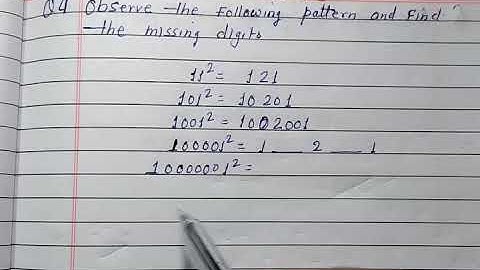 Q4 Observe the Following pattern and Find
the missing digits
11² = 121
101² = 10201
1001² = 1002001
100001² = 1 __ 2 __ 1
10000001² =